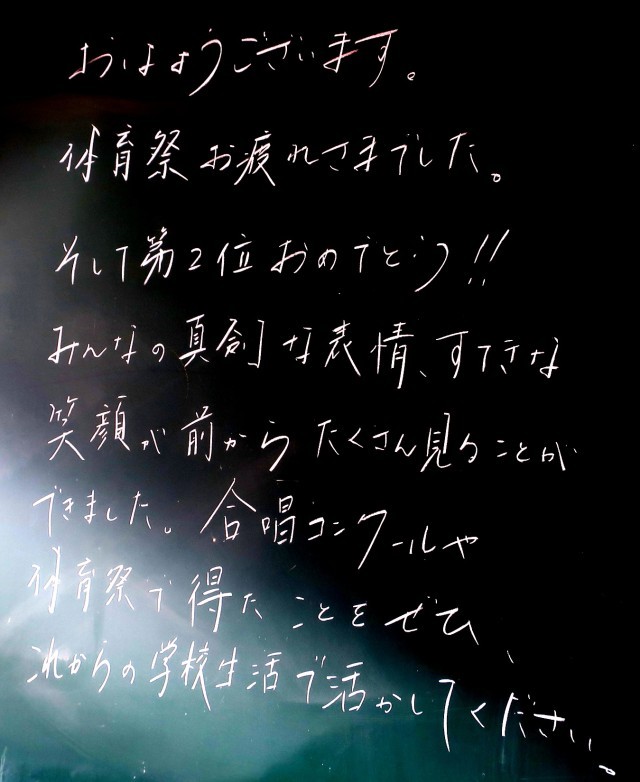 おはようございます。
体育祭お疲れさまでした。
そして第2位おめでとう!!
みんなの真剣な表情、すてきな
笑顔が前からたくさん見ることが
できました。合唱コンクールや
体育祭で得たことをぜひ、
これからの学校生活で活かしてください。